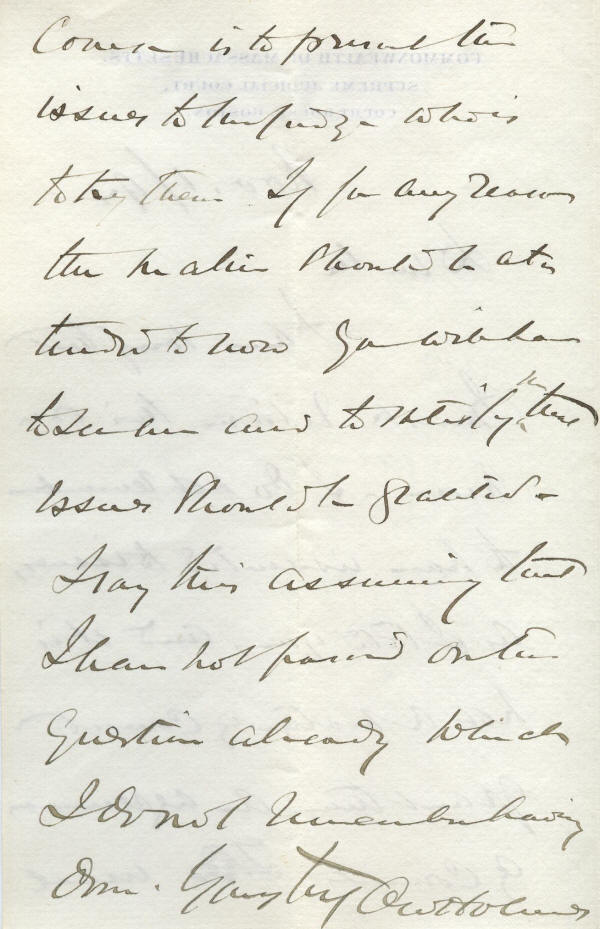 Course is to present the
issues to the judge who is
to try them If for any reason
the matter should be atten
tended to now You will have
to see me and to satisfy me that
issues should be granted -
I say this assuming that
I have not passed on the
question already which
I do not remember having
done. Yours truly O W Holmes